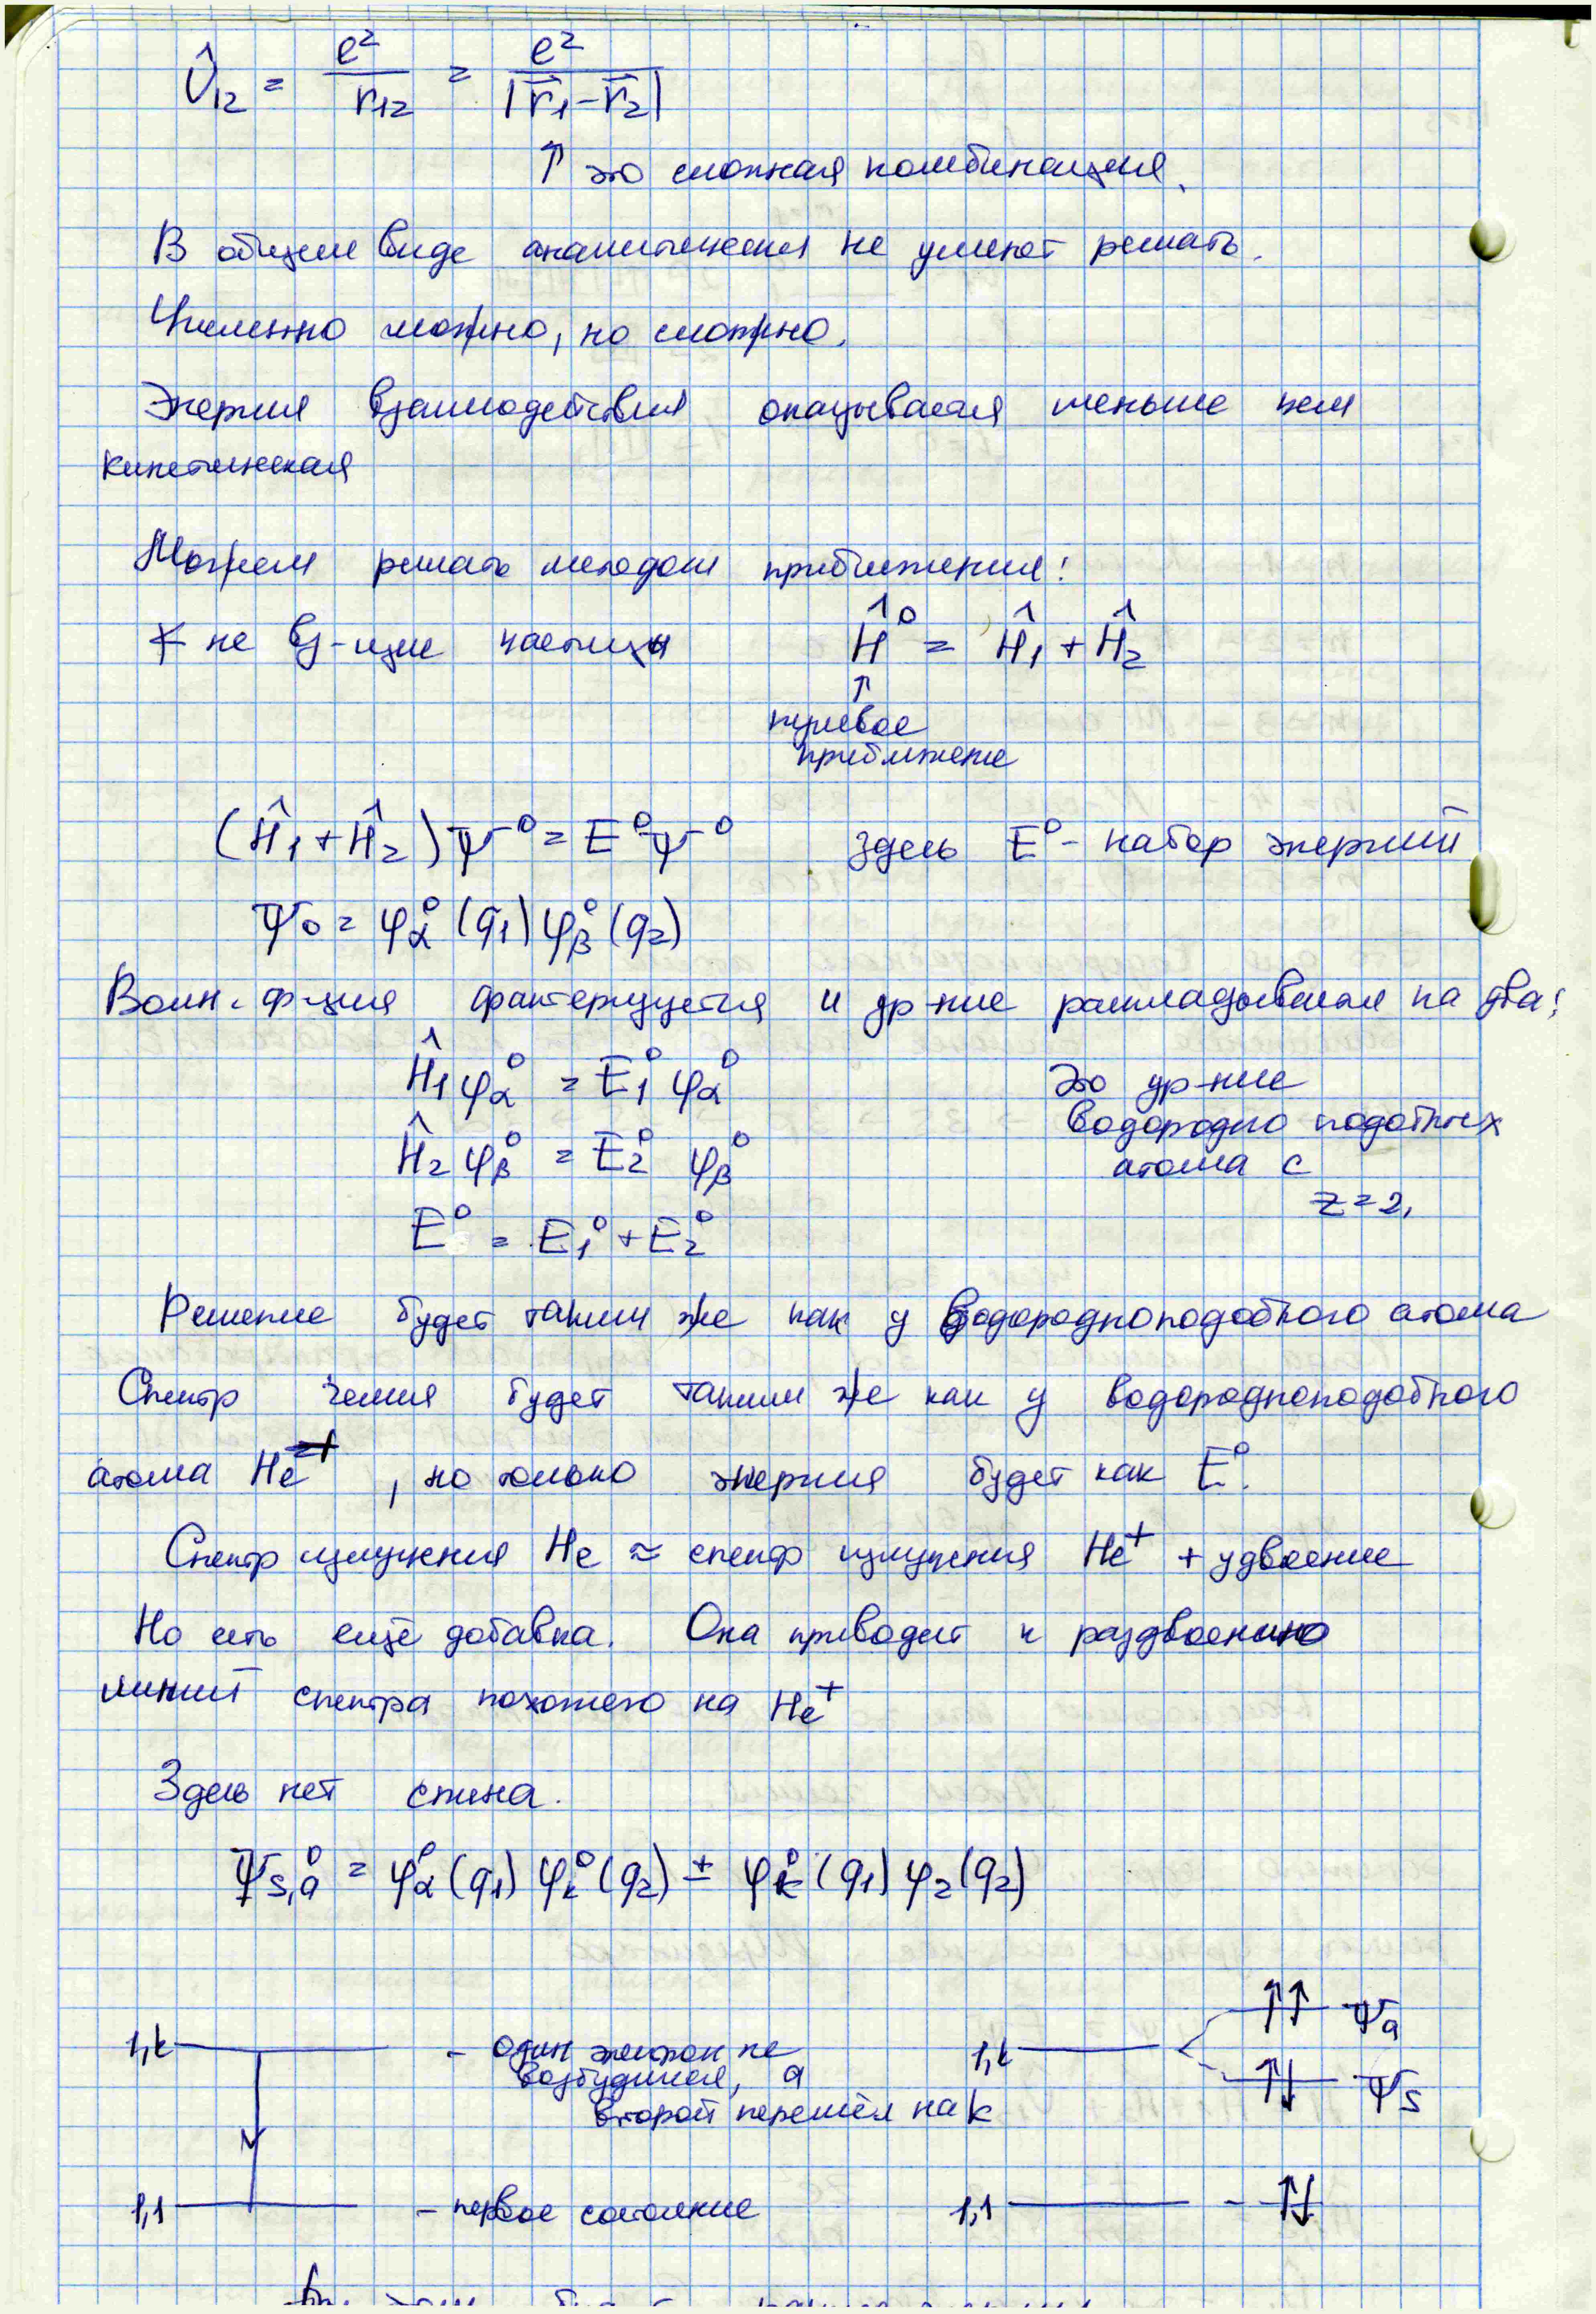 Û₁₂ = e²/r₁₂ = e²/|r⃗₁-r⃗₂|
↑ это сложная комбинация.
В общем виде аналитически не умеют решать.
Численно можно, но сложно.
Энергия взаимодействия оказывается меньше чем
кинетическая
Можем решать методом приближения:
не вз-щие частицы Ĥ⁰ = Ĥ₁ + Ĥ₂
↑
нулевое
приближение
(Ĥ₁ + Ĥ₂)Ψ⁰ = E⁰Ψ⁰ здесь E⁰ - набор энергий
Ψ₀ = φ_α⁰(q₁) φ_β⁰(q₂)
Волн. ф-ция факторизуется и ур-ние раскладывается на два:
Ĥ₁φ_α⁰ = E₁⁰ φ_α⁰ Это ур-ние
Ĥ₂φ_β⁰ = E₂⁰ φ_β⁰ водородно подобных
атома с
E⁰ = E₁⁰ + E₂⁰ z=2.
Решение будет таким же как у водородноподобного атома
Спектр гелия будет таким же как у водородноподобного
атома He⁺, но только энергия будет как E⁰.
Спектр излучения He ≈ спектр излучения He⁺ + удвоение
Но есть ещё добавка. Она приводит к раздвоению
линий спектра похожего на He⁺
Здесь нет спина.
Ψ_{s,a}⁰ = φ_α⁰(q₁) φ_k⁰(q₂) ± φ_k⁰(q₁) φ₂(q₂)
↑↑ Ψa
1,k - один электрон не 1,k
возбудился, а ↑↓ Ψs
второй перешёл на k
1,1 - первое состояние 1,1 - ↑↓